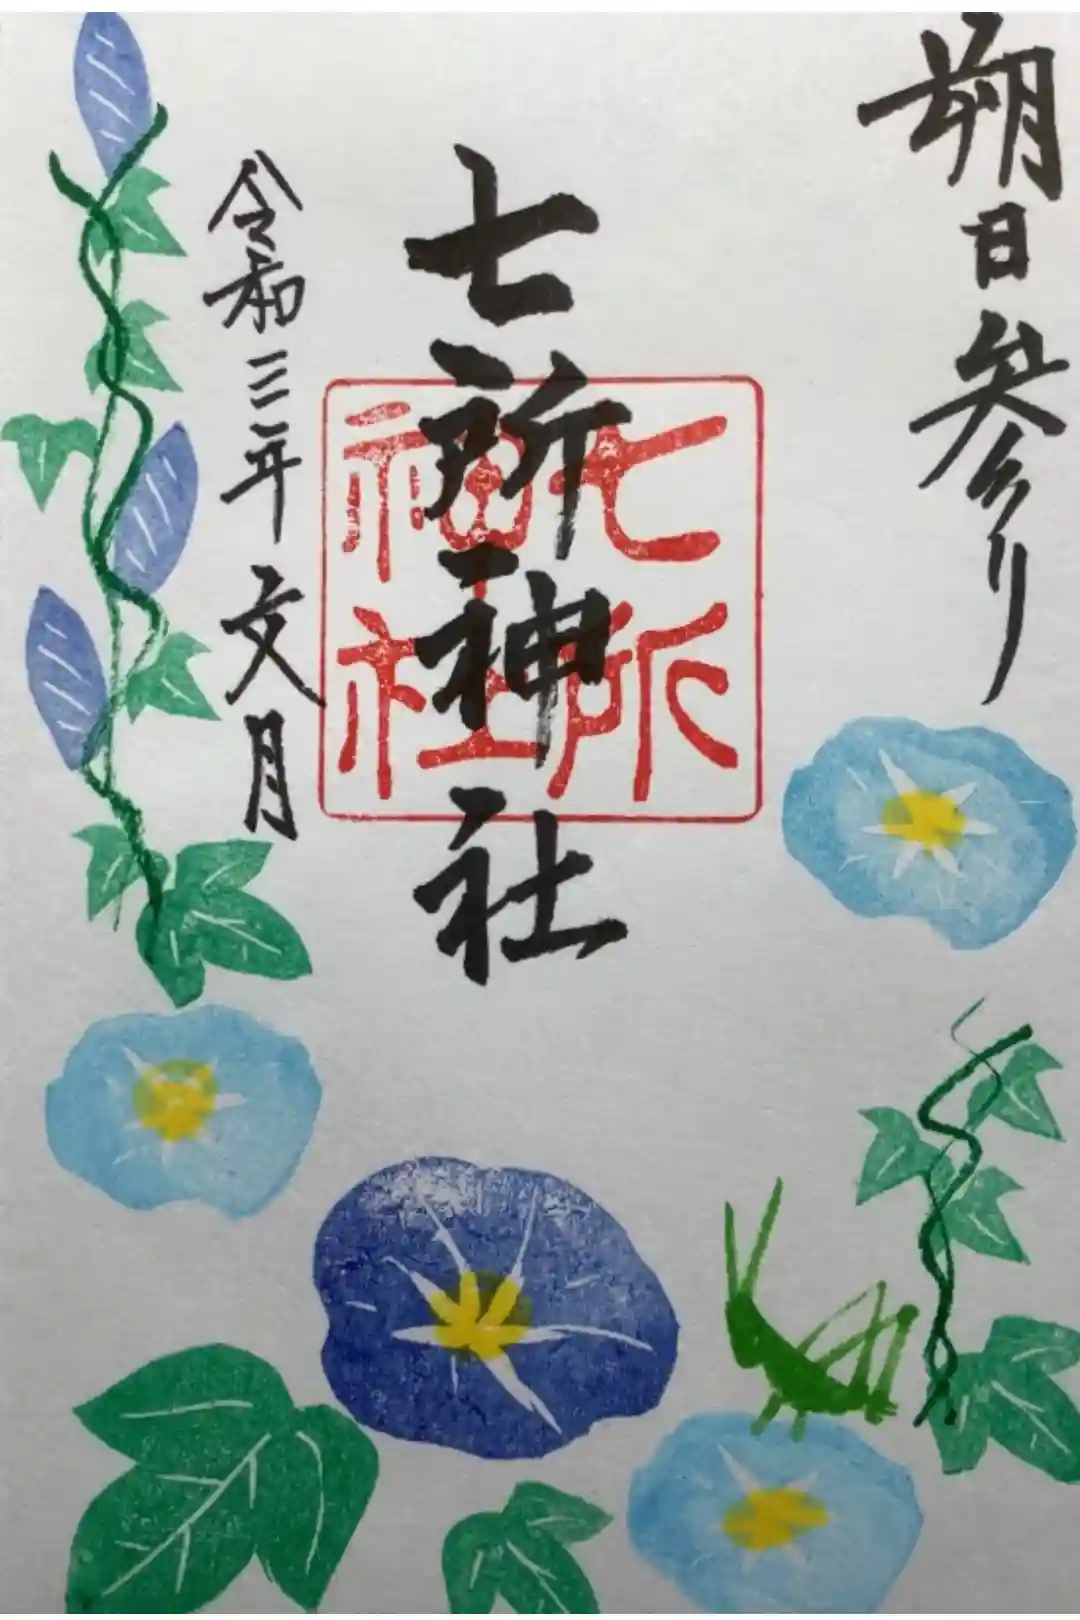 朔日参り
七所神社
七所
神社
令和三年文月